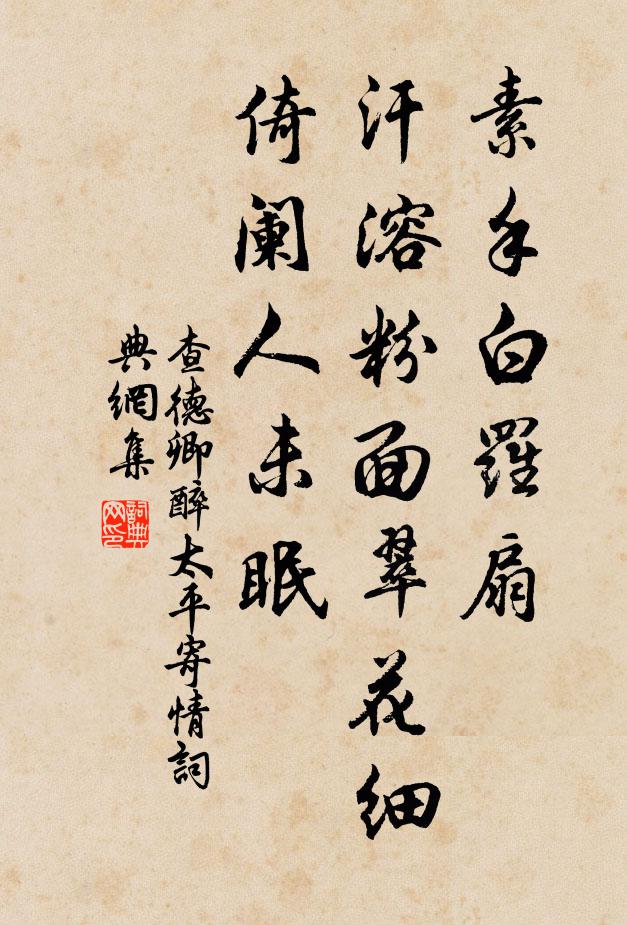 素手白羅扇
汗溶粉面翠花细
倚阑人未眠
查德卿醉太平寄情詞
典網集
詞典网印